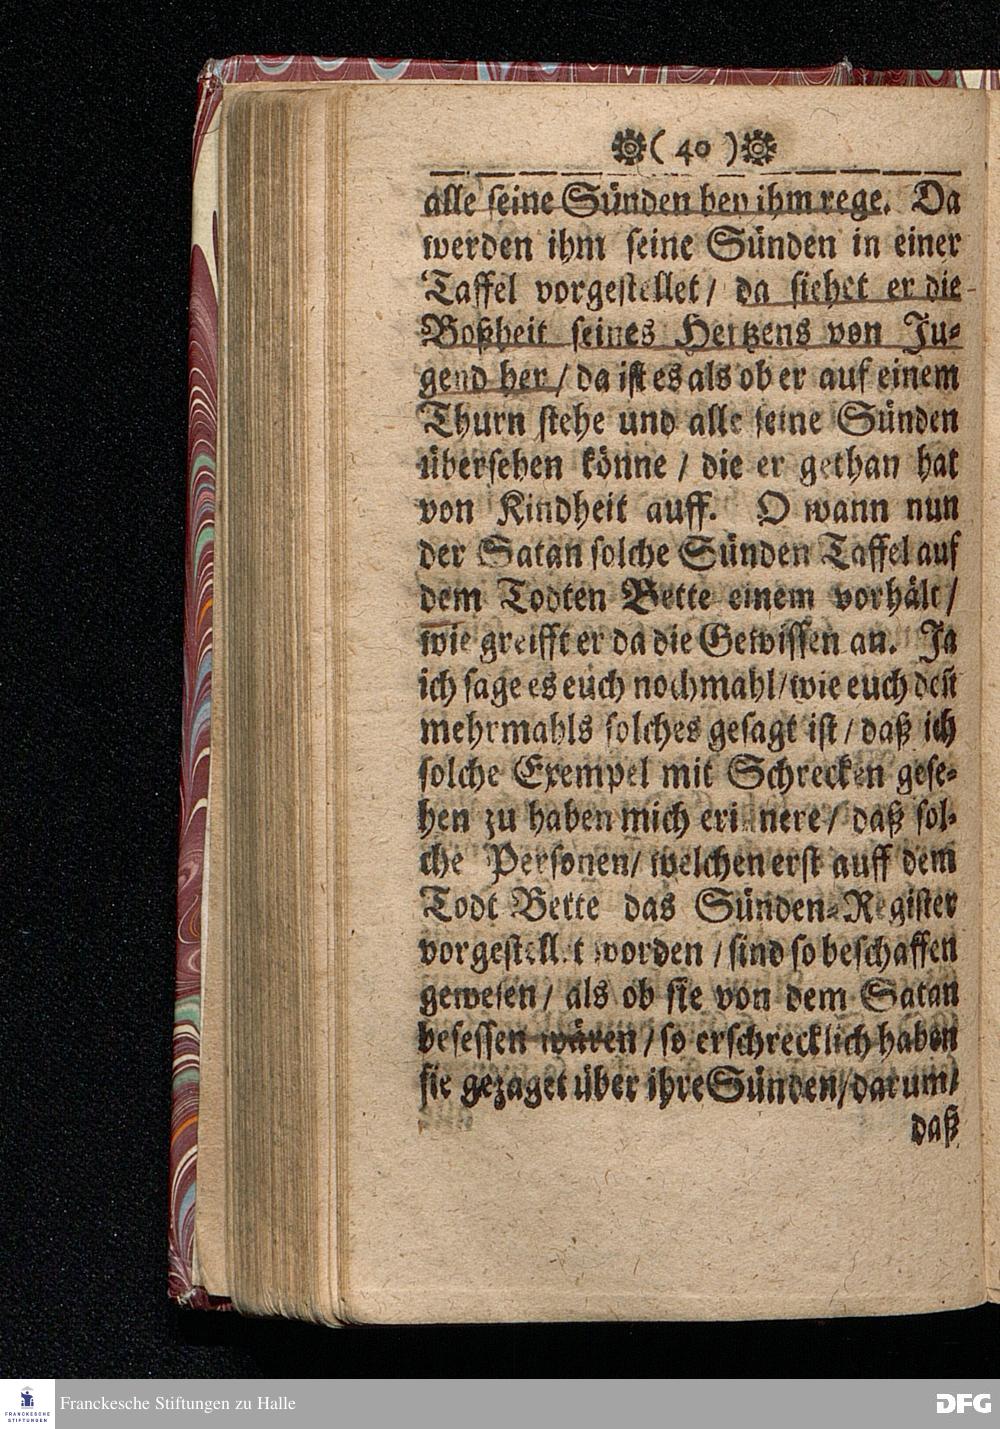 ( 40 )
alle seine Sünden bey ihm rege. Da
werden ihm seine Sünden in einer
Taffel vorgestellet / da siehet er die
Boßheit seines Hertzens von Ju-
gend her / da ist es als ob er auf einem
Thurn stehe und alle seine Sünden
übersehen könne / die er gethan hat
von Kindheit auff. O wann nun
der Satan solche Sünden Taffel auf
dem Todten Bette einem vorhält /
wie greifft er da die Gewissen an. Ja
ich sage es euch nochmahl / wie euch deß
mehrmahls solches gesagt ist / daß ich
solche Exempel mit Schrecken gese-
hen zu haben mich erinnere / daß sol-
che Personen / welchen erst auff dem
Todt Bette das Sünden-Register
vorgestellet worden / sind so beschaffen
gewesen / als ob sie von dem Satan
besessen wären / so erschrecklich haben
sie gezaget über ihre Sünden / darum /
daß
Franckesche Stiftungen zu Halle
FRANCKESCHE
STIFTUNGEN
DFG